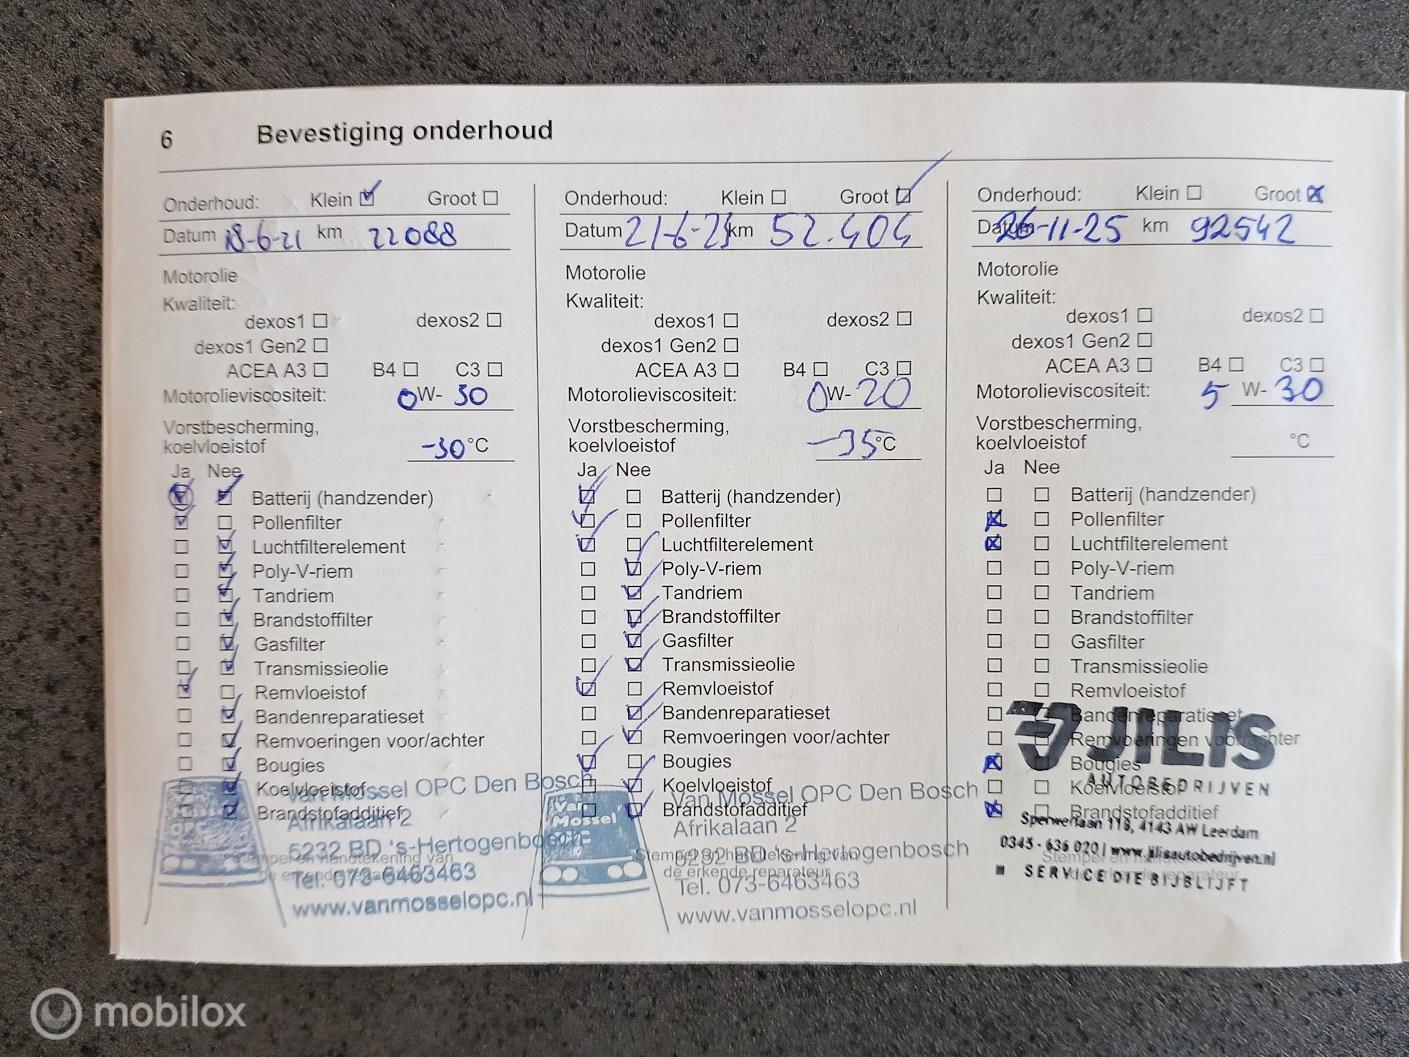 6 Bevestiging onderhoud
Onderhoud: Klein Groot
Datum 18-6-21 km 22088
Motorolie
Kwaliteit:
dexos1 dexos2
dexos1 Gen2
ACEA A3 B4 C3
Motorolieviscositeit: 0W- 30
Vorstbescherming,
koelvloeistof -30°C
Ja Nee
Batterij (handzender)
Pollenfilter
Luchtfilterelement
Poly-V-riem
Tandriem
Brandstoffilter
Gasfilter
Transmissieolie
Remvloeistof
Bandenreparatieset
Remvoeringen voor/achter
Bougies
Koelvloeistof
Brandstofadditief
Stempel en handtekening van
de erkende reparateur
Van Mossel OPC Den Bosch
Afrikalaan 2
5232 BD 's-Hertogenbosch
Tel. 073-6463463
www.vanmosselopc.nl
Onderhoud: Klein Groot
Datum 21-6-23 km 52.404
Motorolie
Kwaliteit:
dexos1 dexos2
dexos1 Gen2
ACEA A3 B4 C3
Motorolieviscositeit: 0W-20
Vorstbescherming,
koelvloeistof -35°C
Ja Nee
Batterij (handzender)
Pollenfilter
Luchtfilterelement
Poly-V-riem
Tandriem
Brandstoffilter
Gasfilter
Transmissieolie
Remvloeistof
Bandenreparatieset
Remvoeringen voor/achter
Bougies
Koelvloeistof
Brandstofadditief
Stempel en handtekening van
de erkende reparateur
Van Mossel
Van Mossel OPC Den Bosch
Afrikalaan 2
5232 BD 's-Hertogenbosch
Tel. 073-6463463
www.vanmosselopc.nl
Onderhoud: Klein Groot
Datum 26-11-25 km 92542
Motorolie
Kwaliteit:
dexos1 dexos2
dexos1 Gen2
ACEA A3 B4 C3
Motorolieviscositeit: 5 W- 30
Vorstbescherming,
koelvloeistof °C
Ja Nee
Batterij (handzender)
Pollenfilter
Luchtfilterelement
Poly-V-riem
Tandriem
Brandstoffilter
Gasfilter
Transmissieolie
Remvloeistof
Bandenreparatieset
Remvoeringen voor/achter
Bougies
Koelvloeistof
Brandstofadditief
JILIS
AUTOBEDRIJVEN
Sperwerlaan 118, 4143 AW Leerdam
0345 - 636 020 | www.jilisautobedrijven.nl
SERVICE DIE BIJBLIJFT
mobilox